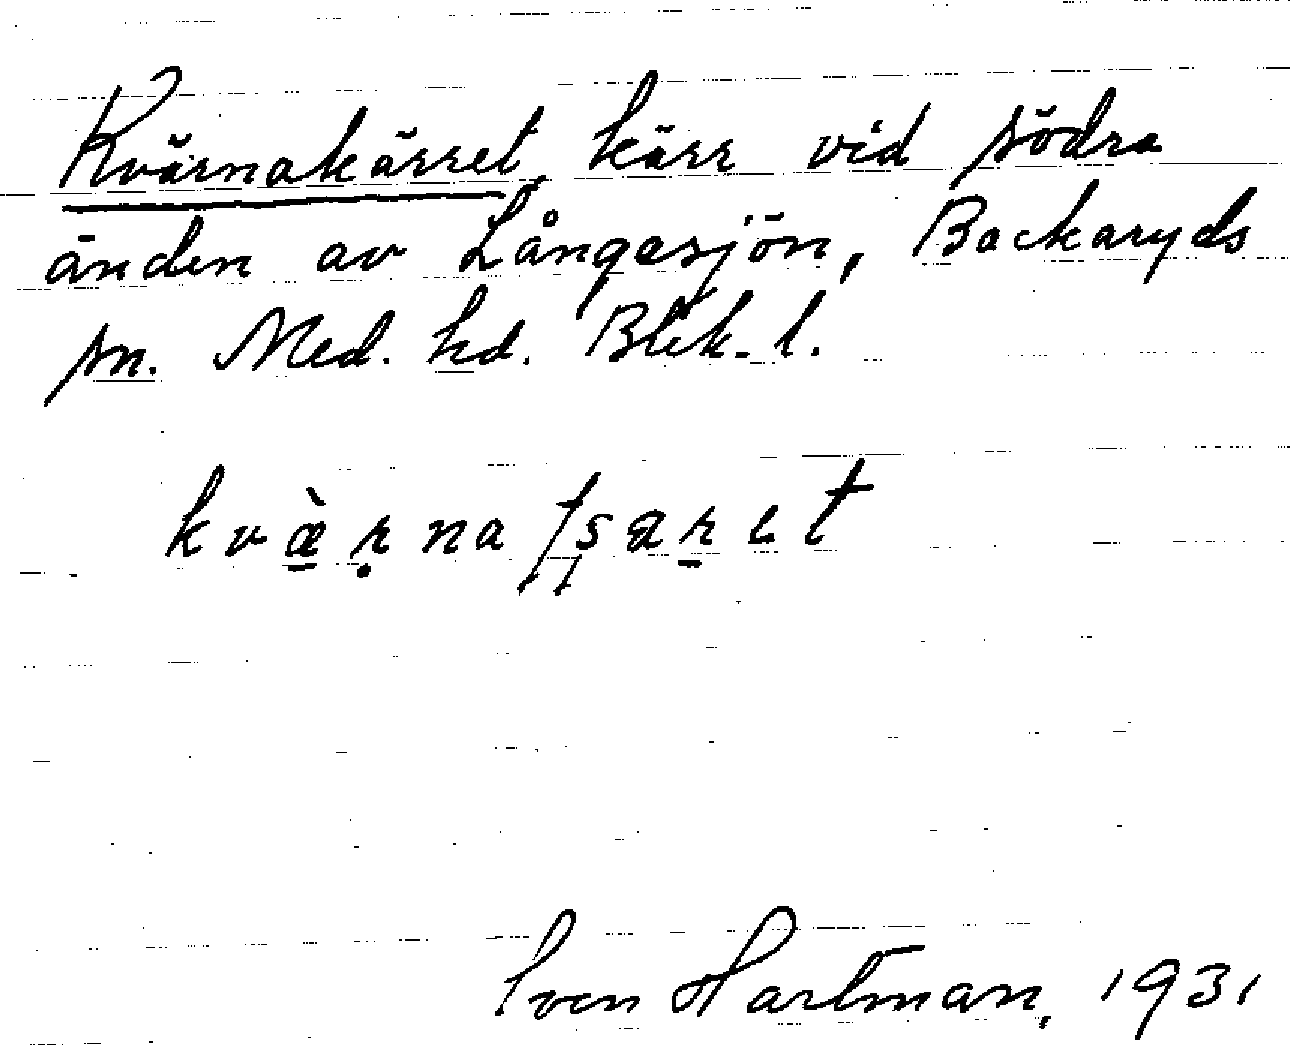 Kvärnakärret, kärr vid södra
änden av Långasjön, Backaryds
sn. Med. hd. Blek. l.
Sven Hartman, 1931